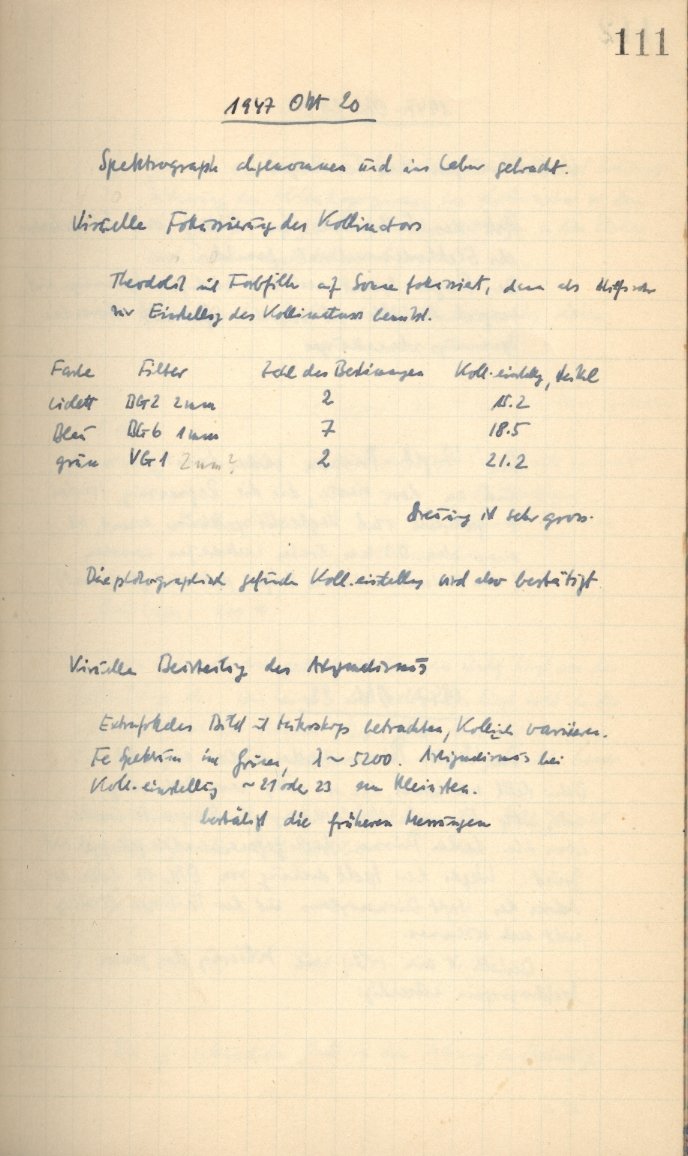 111
1947 Okt 20
Spektrograph abgenommen und ins Labor gebracht.
Visuelle Fokussierung des Kollimators
Theodolit mit Farbfilter auf Sonne fokussiert, dann als
zur Einstellung des Kollimators benutzt.
Farbe Filter Zahl der Bestimmungen Koll.einstellg, Mittel
violett BG2 2mm 2 15.2
Blau BG6 1mm 7 18.5
grün VG1 2mm? 2 21.2
Streuung ist sehr gross.
Die photographisch gefundene Koll.einstellung wird also bestätigt
Visuelle Beurteilung des Astigmatismus
Extrafokales Bild mit Mikroskop betrachten, variieren.
Fe Spektrum im Grünen, λ ~ 5200. Astigmatismus bei
Koll.einstellung ~ 21 oder 23 am Kleinsten.
bestätigt die früheren Messungen